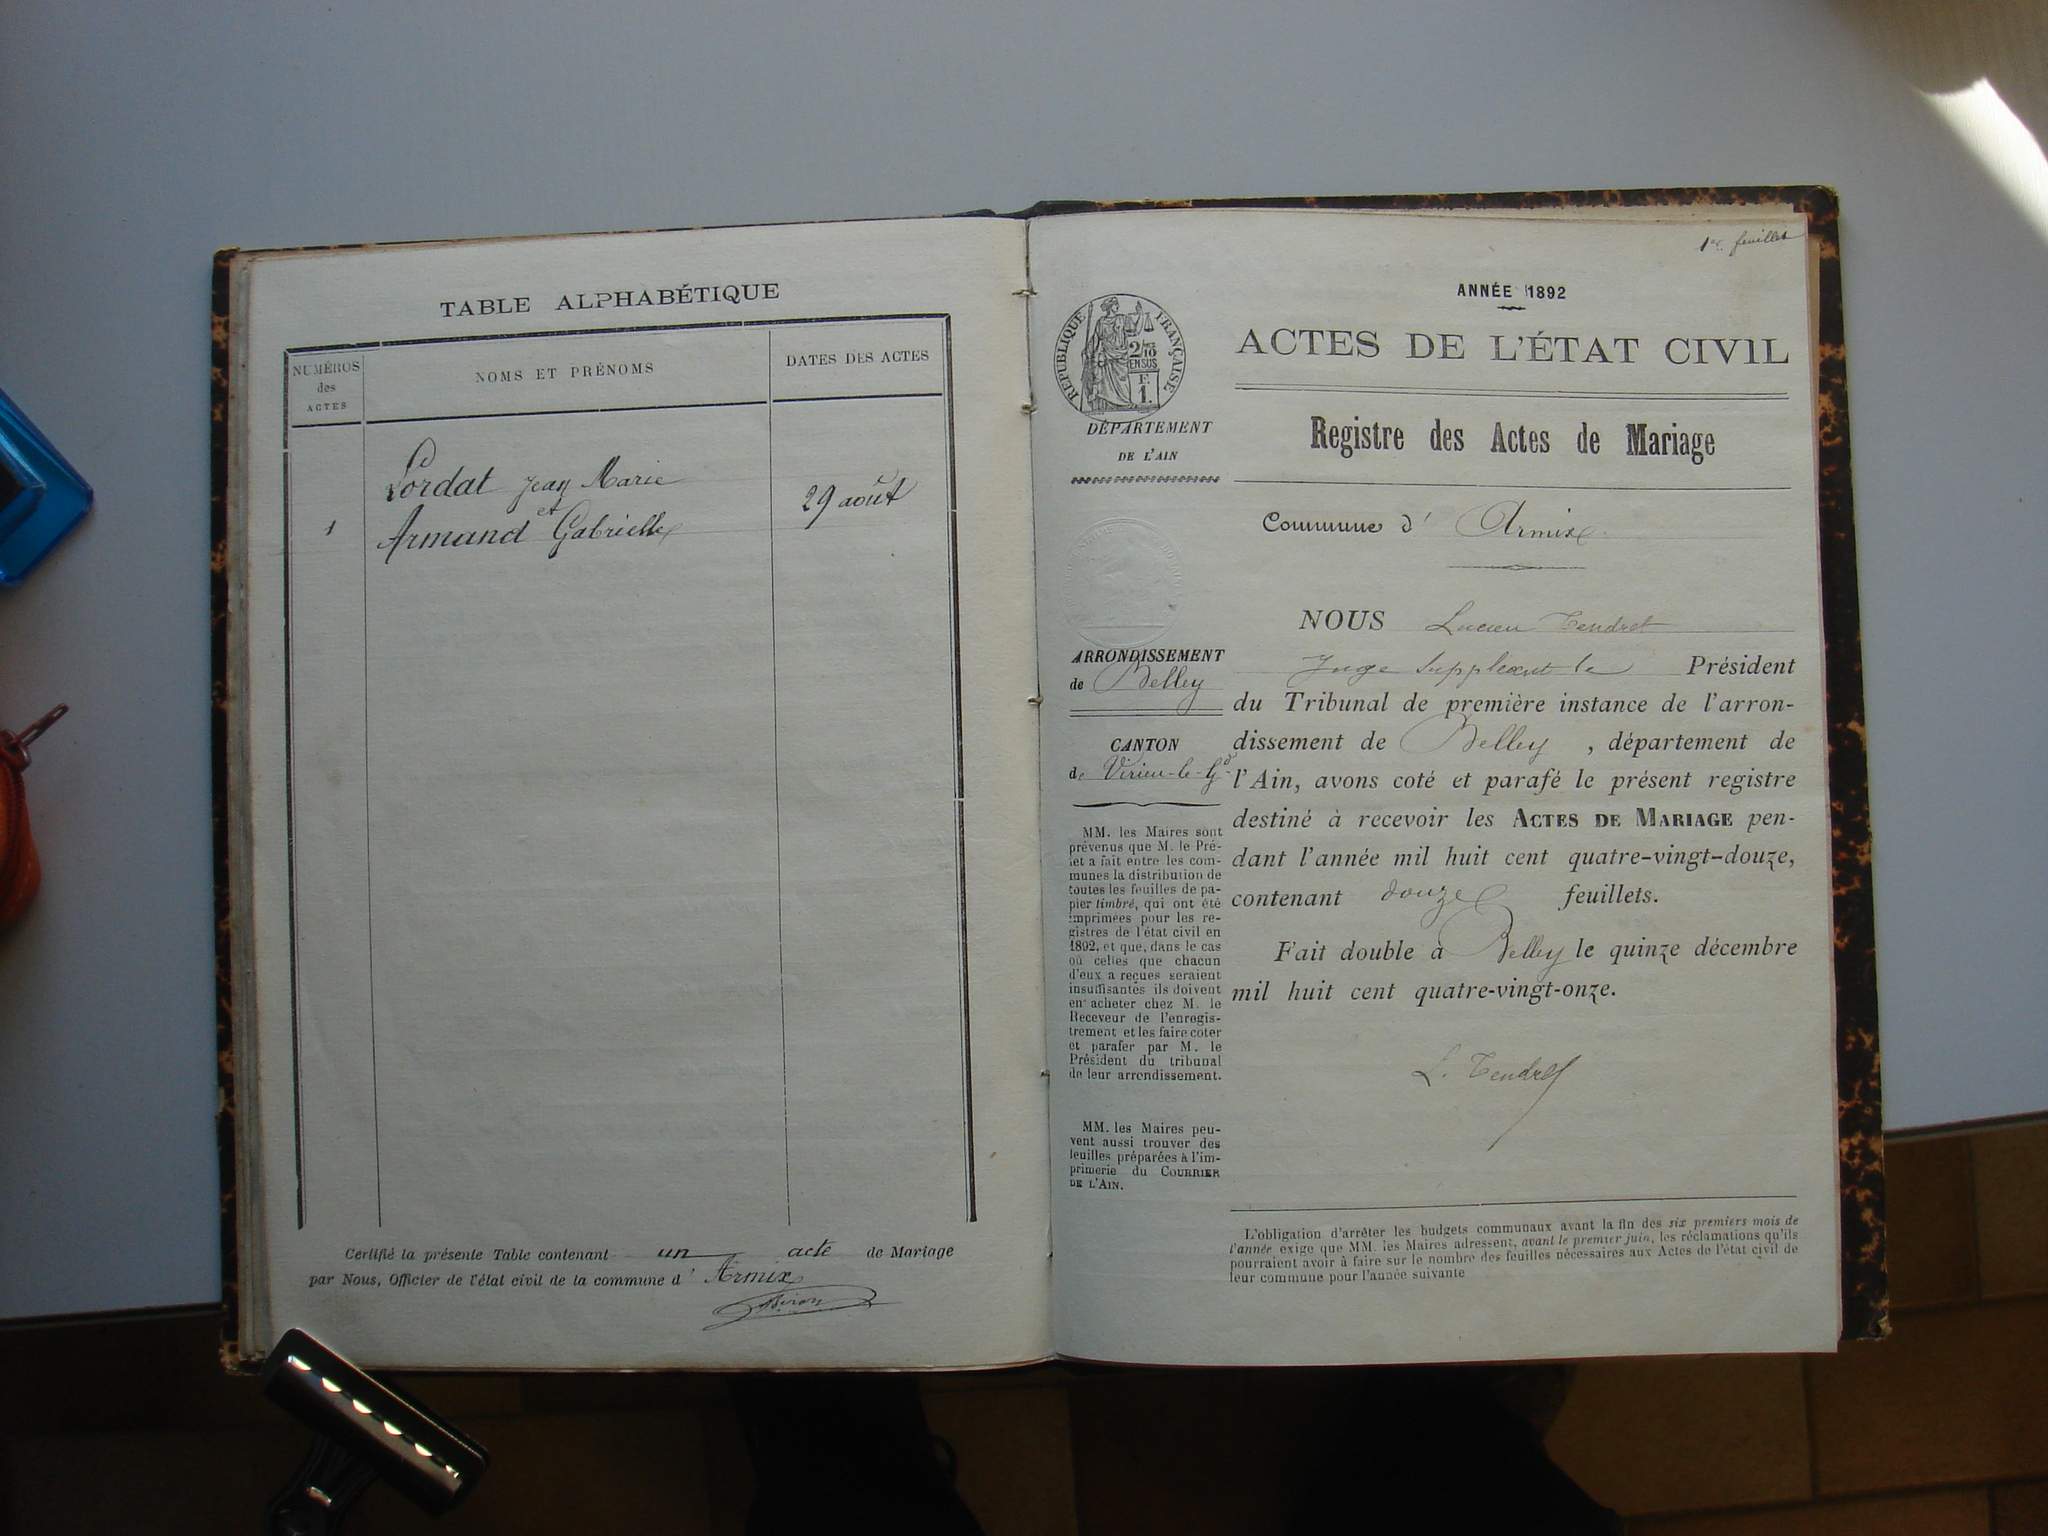 TABLE ALPHABÉTIQUE
NUMÉROS
des
ACTES
NOMS ET PRÉNOMS
DATES DES ACTES
Jean Marie
et
1
Armand Gabrielle
29 août
Certifié la présente Table contenant un acte de Mariage
par Nous, Officier de l'état civil de la commune d' Armix
1er feuillet
ANNÉE 1892
ACTES DE L'ÉTAT CIVIL
RÉPUBLIQUE FRANÇAISE
2/10
EN SUS
F.
1.
DÉPARTEMENT
DE L'AIN
Registre des Actes de Mariage
Commune d' Armix
NOUS Lucien Tendret
Juge suppléant le Président
ARRONDISSEMENT
de Belley
du Tribunal de première instance de l'arron-
dissement de Belley, département de
CANTON
de Virieu-le-Gd
l'Ain, avons coté et parafé le présent registre
destiné à recevoir les ACTES DE MARIAGE pen-
dant l'année mil huit cent quatre-vingt-douze,
contenant douze feuillets.
Fait double à Belley le quinze décembre
mil huit cent quatre-vingt-onze.
L. Tendret
MM. les Maires sont
prévenus que M. le Pré-
fet a fait entre les com-
munes la distribution de
toutes les feuilles de pa-
pier timbré, qui ont été
imprimées pour les re-
gistres de l'état civil en
1892, et que, dans le cas
où celles que chacun
d'eux a reçues seraient
insuffisantes ils doivent
en acheter chez M. le
Receveur de l'enregis-
trement et les faire coter
et parafer par M. le
Président du tribunal
de leur arrondissement.
MM. les Maires peu-
vent aussi trouver des
feuilles préparées à l'im-
primerie du COURRIER
DE L'AIN.
L'obligation d'arrêter les budgets communaux avant la fin des six premiers mois de
l'année exige que MM. les Maires adressent, avant le premier juin, les réclamations qu'ils
pourraient avoir à faire sur le nombre des feuilles nécessaires aux Actes de l'état civil de
leur commune pour l'année suivante